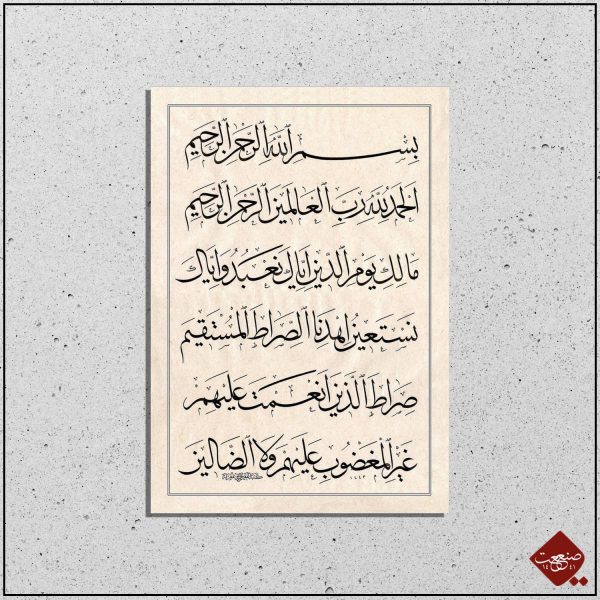 بسم الله الرحمن الرحيم
الحمد لله رب العالمين الرحمن الرحيم
مالك يوم الدين اياك نعبد و اياك
نستعين اهدنا الصراط المستقيم
صراط الذين انعمت عليهم
غير المغضوب عليهم ولا الضالين
١٤٤٢
صنیعت
١٤ ٤١